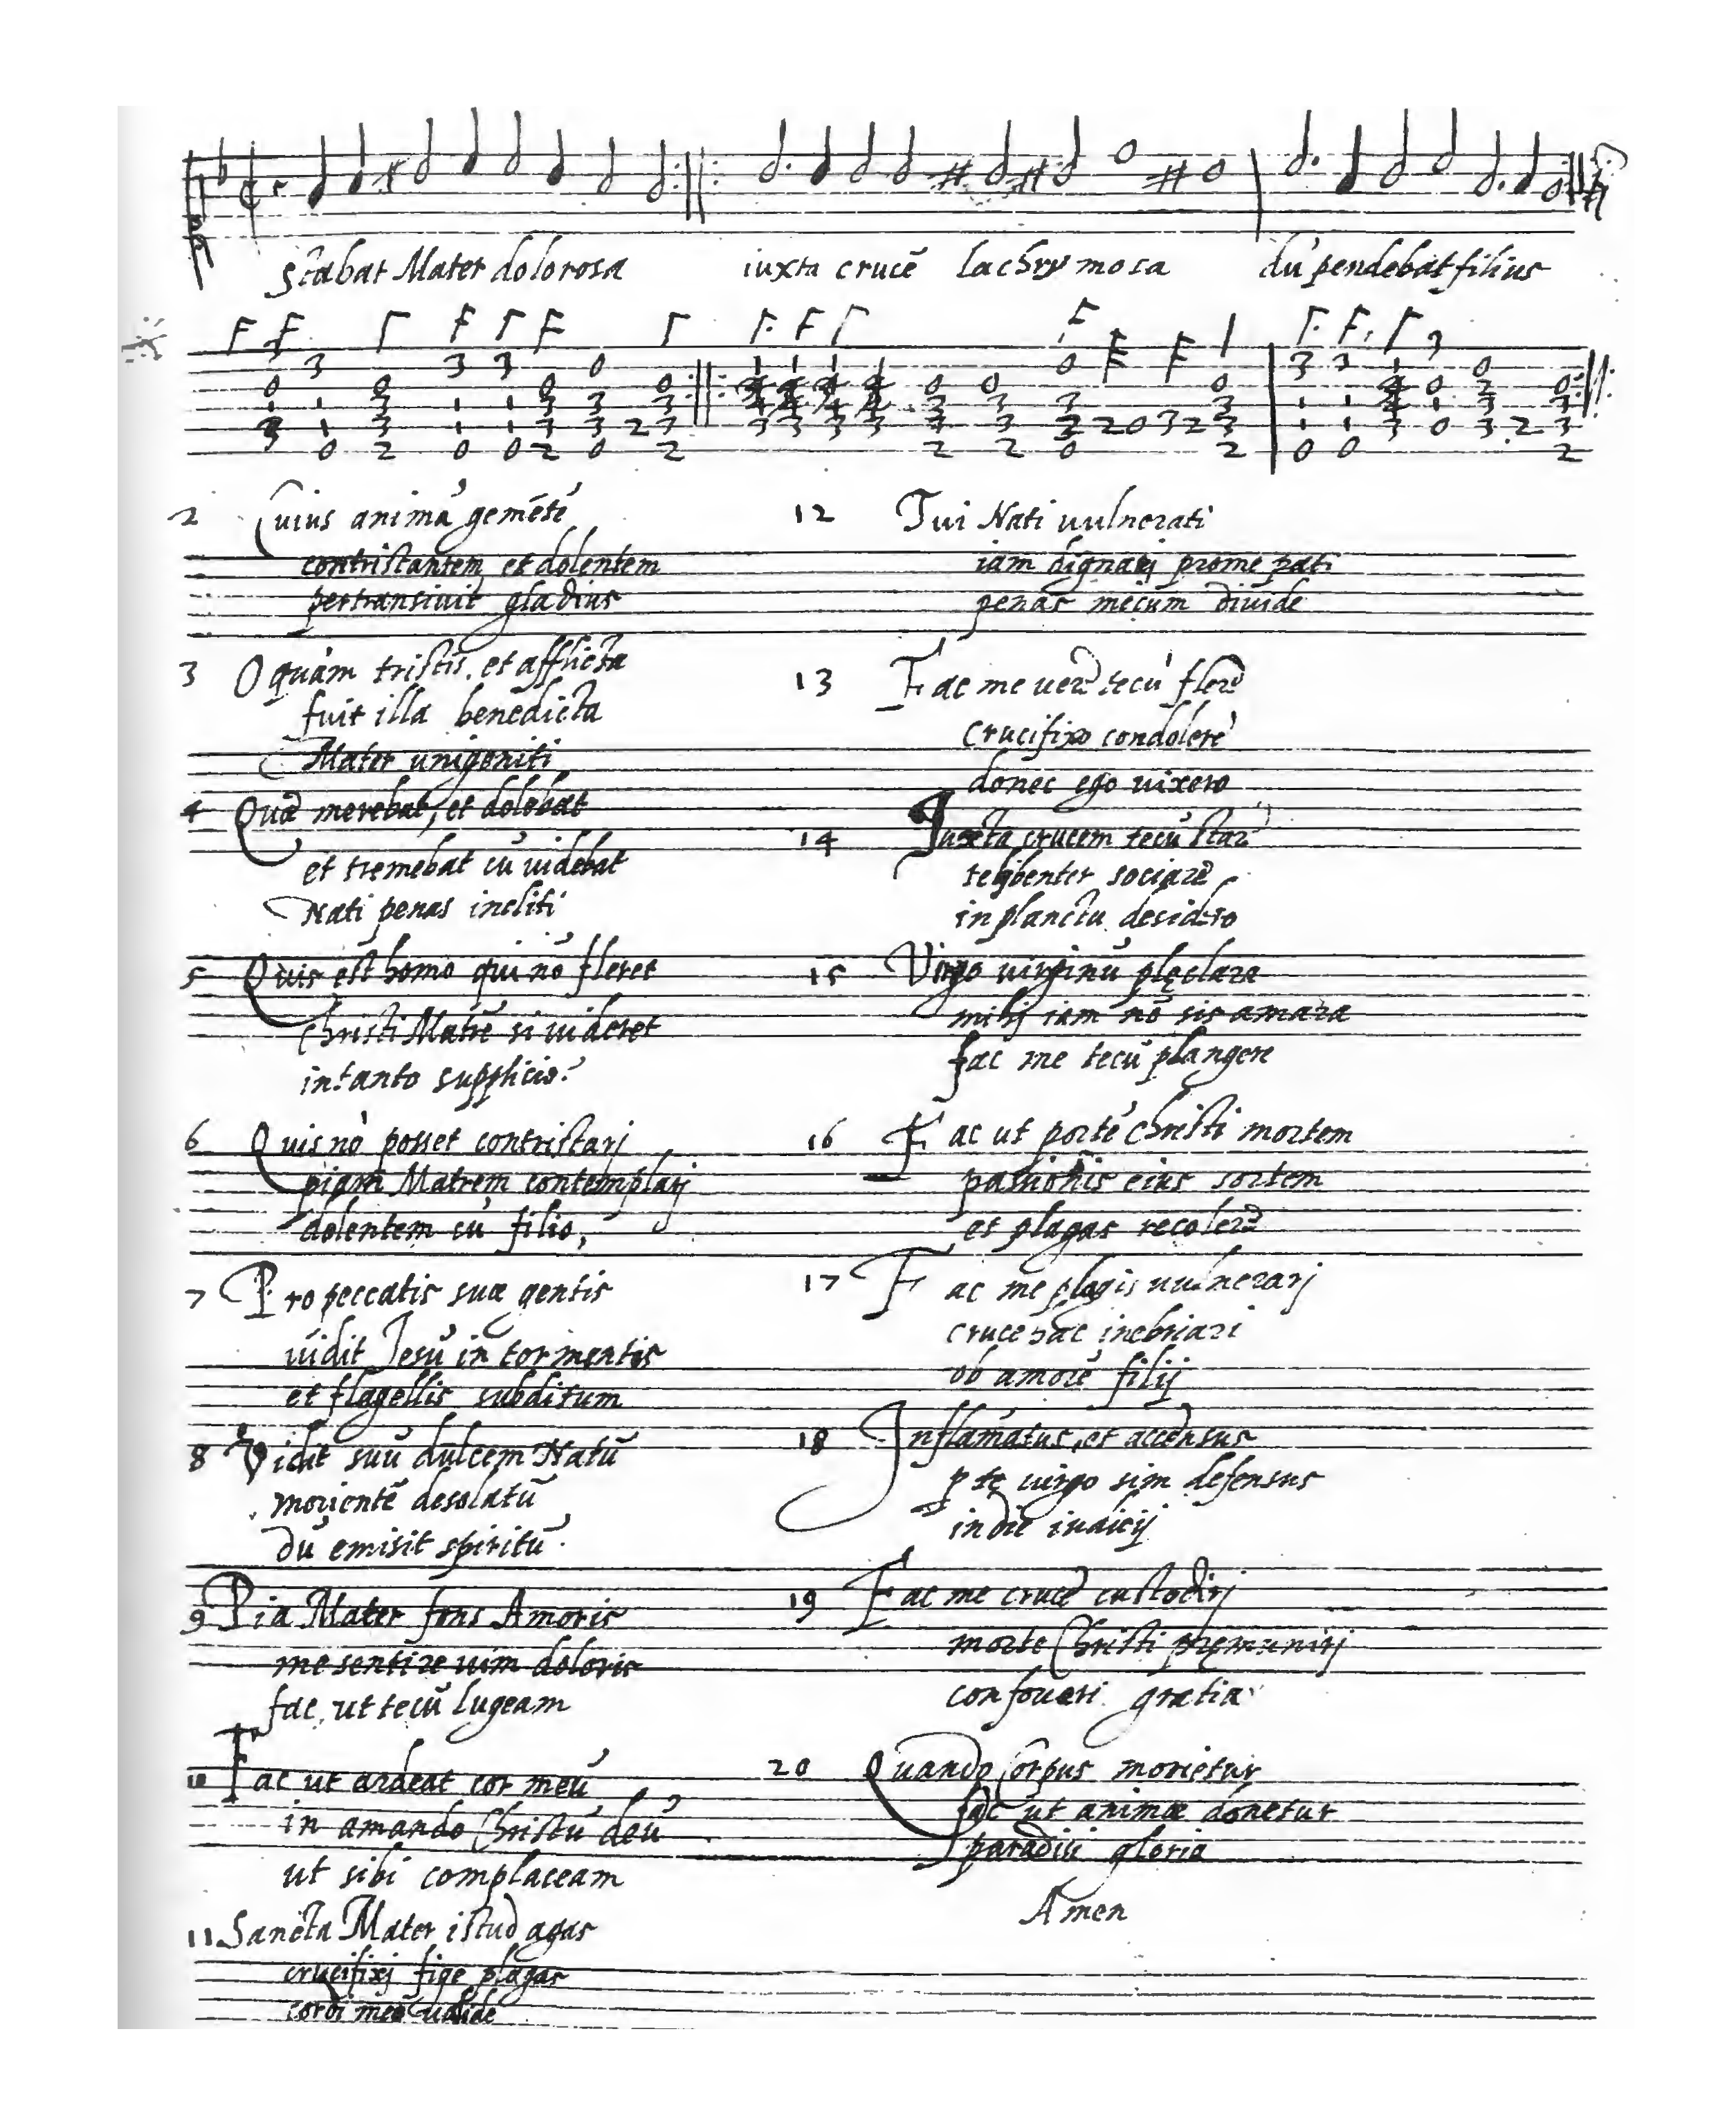 Stabat Mater dolorosa iuxta crucē lachrymosa dū pendebat filius
2 Cuius animā gemētē
contristantem et dolentem
pertransiuit gladius
3 O quàm tristis et afflicta
fuit illa benedicta
Mater unigeniti
4 Quæ merebat, et dolebat
et tremebat cū uidebat
Nati penas incliti
5 Quis est homo qui nō fleret
Christi Matrē si uideret
in tanto supplicio?
6 Quis nō posset contristarj
piam Matrem contemplarj
dolentem cū filio,
7 Pro peccatis suæ gentis
uidit Iesū in tormentis
et flagellis subditum
8 Vidit suū dulcem Natū
morientē desolatū
dū emisit spiritū.
9 Pia Mater fons Amoris
me sentire uim doloris
fac, ut tecū lugeam
10 Fac ut ardeat cor meū
in amando Christū deū
ut sibi complaceam
11 Sancta Mater istud agas
crucifixj fige plagas
cordi meo ualide
12 Tui Nati uulnerati
iam dignarj pro me pati
penas mecum diuide
13 Fac me uere tecū flere
Crucifixo condolere
donec ego uixero
14 Iuxta crucem tecū stare
te libenter sociare
in planctu desidero
15 Virgo uirginū pręclara
mihj iam nō sis amara
fac me tecū plangere
16 Fac ut portē Christi mortem
passionis eius sortem
et plagas recolere
17 Fac me plagis uulnerarj
cruce hac inebriari
ob amorē filij
18 Inflāmatus, et accensus
p te uirgo sim defensus
in die iudicij
19 Fac me cruce custodirj
morte Christi pręmunirj
confoueri gratia
20 Quando Corpus morietur
fac ut animæ donetur
paradisi gloria
Amen